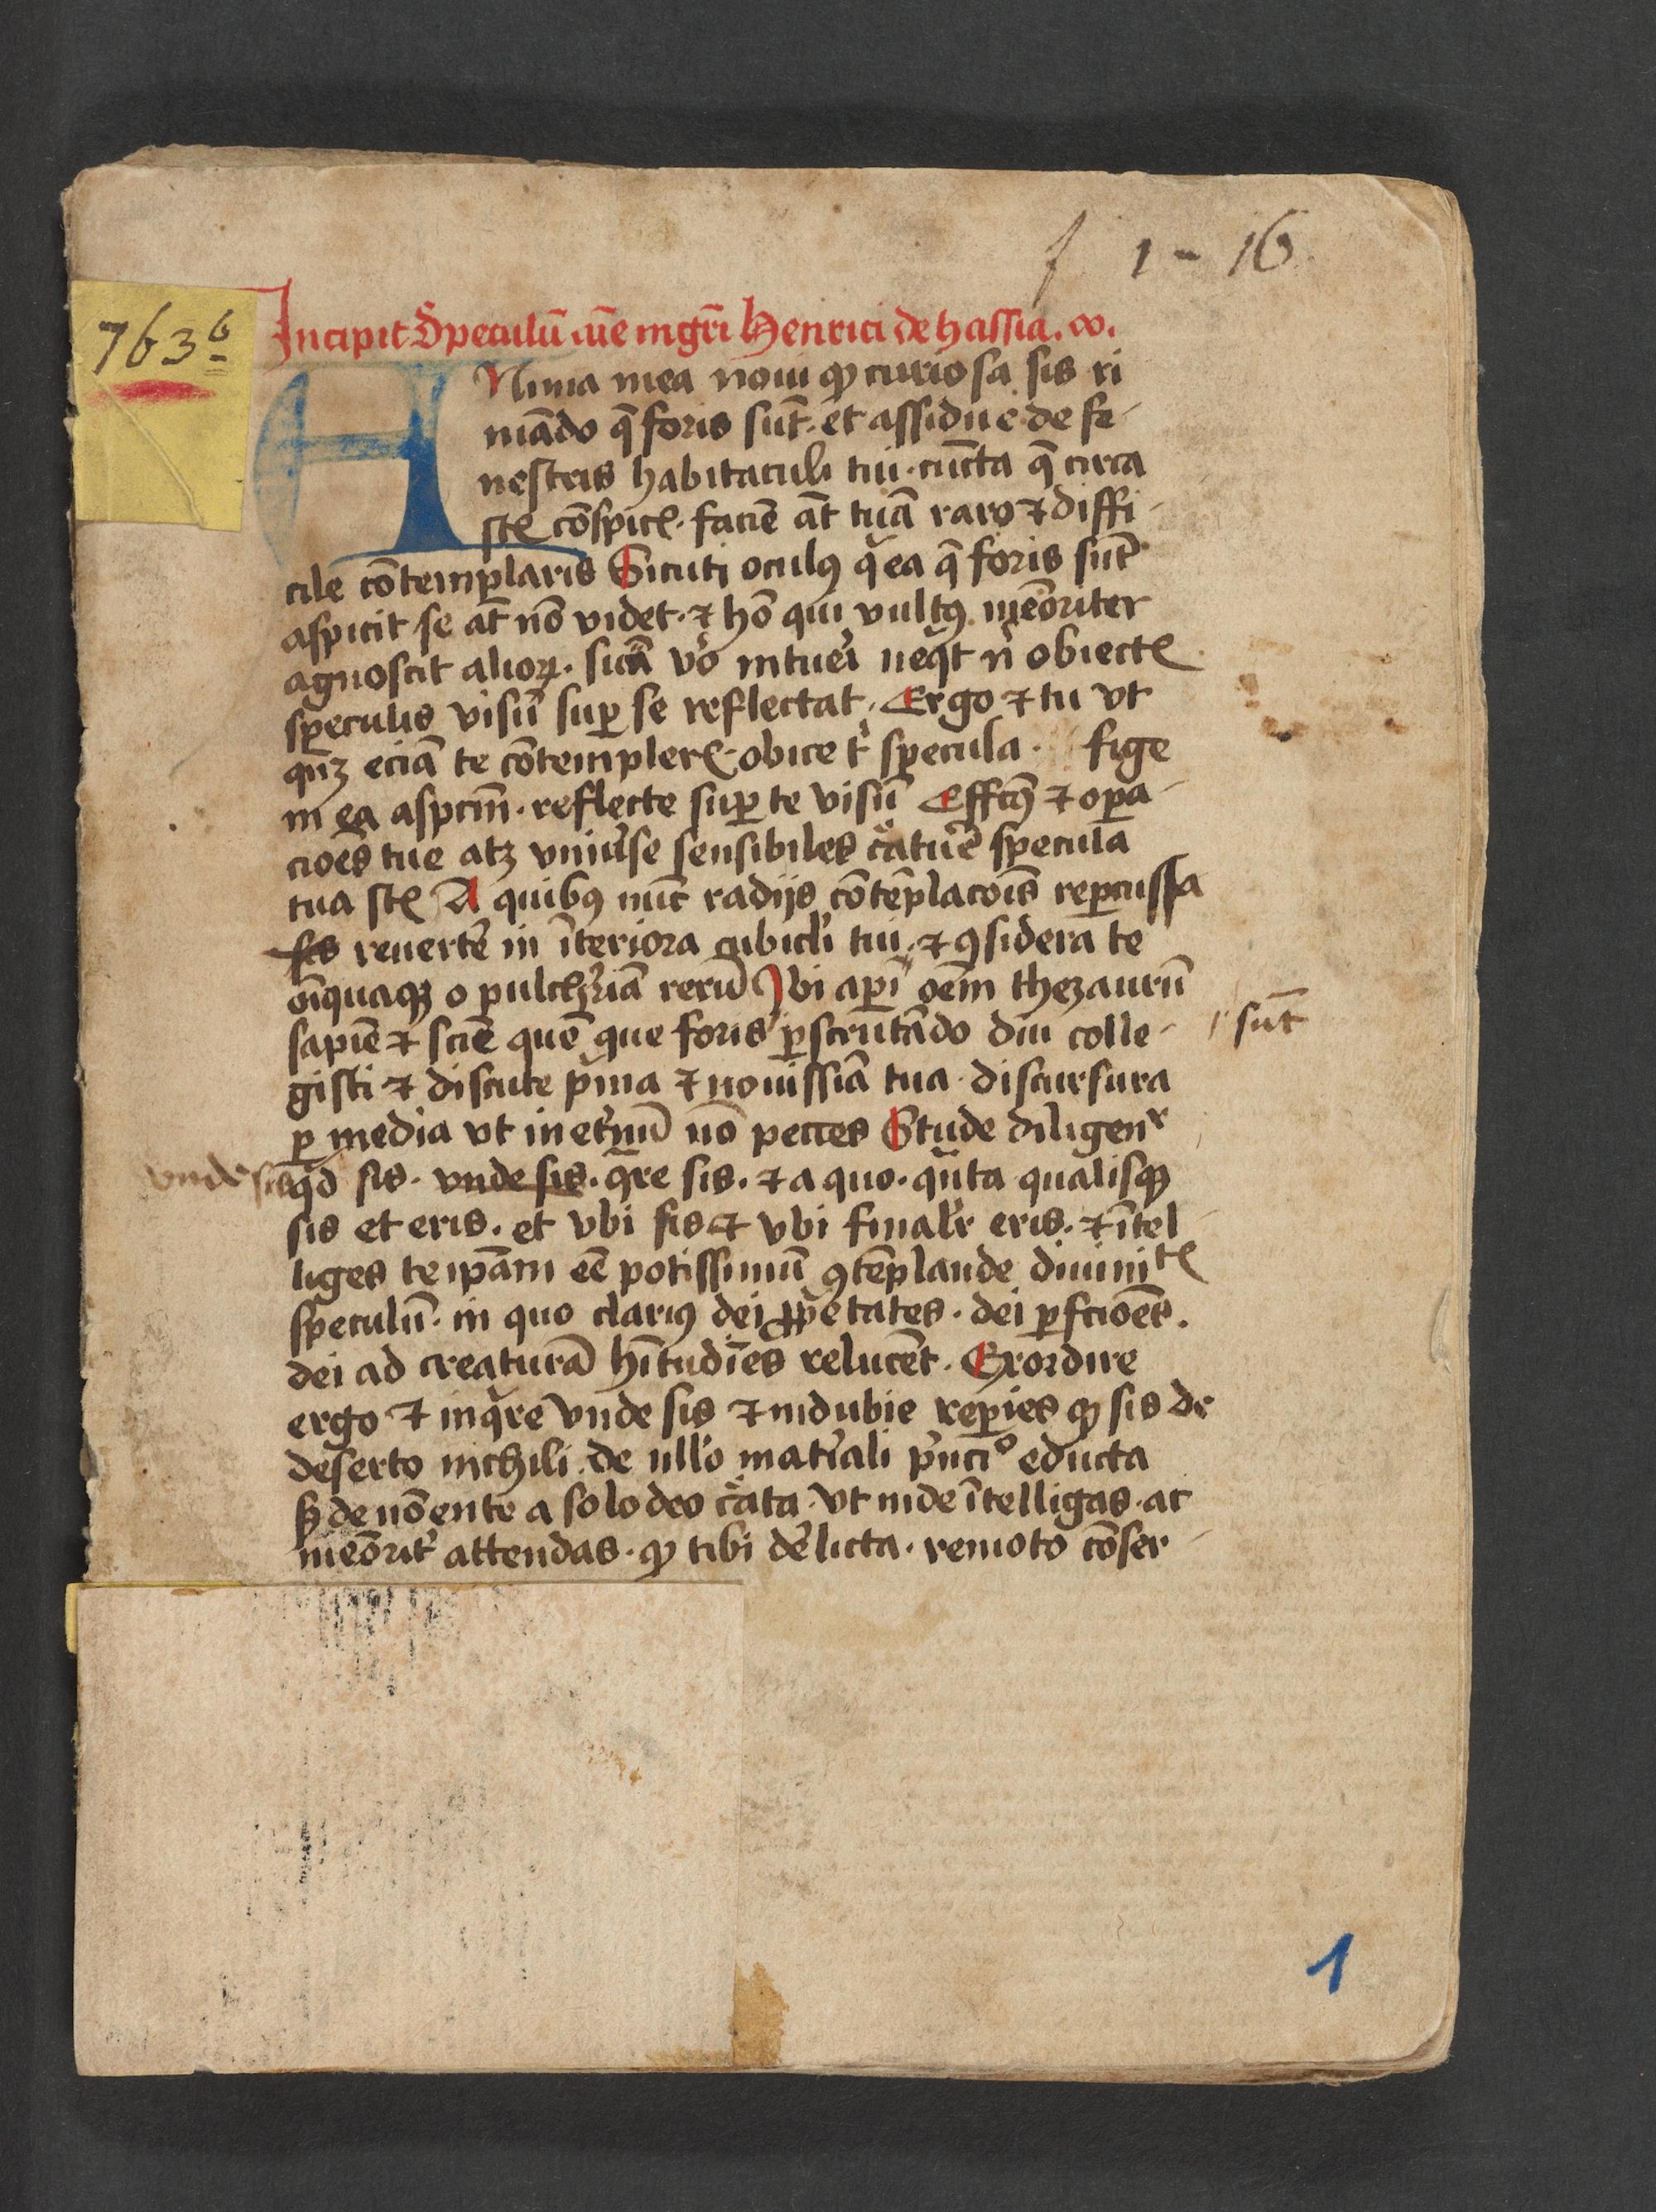 f 1 - 16
763 b
Incipit Speculū aīe mgr̄i Henrici de hassia.
Anima mea noui ꝙ curiosa sis ri
mādo q̄ foris sūt. et assidue de fe-
nestris habitaculi tui. cūcta q̄ circa
st̄ cōspic̄. faciē āt tuā raro ⁊ diffi-
cile cōtemplaris Sicuti oculꝰ q̄ ea q̄ foris sūt
aspicit se āt nō videt. ⁊ hō qui vultꝰ mēoriter
agnoscit alioꝝ. suā vo intueri neqt n obiectꝭ
speculis visū suꝑ se reflectat. Ergo ⁊ tu vt
qnꝫ eciā te cōtemplerꝭ obice t' specula. fige
in ea aspcm̄. reflecte suꝑ te visū Effcꝰ ⁊ opa-
cioēs tue atꝫ vniu'se sensibiles c'ature specula
tua st̄ A quibꝯ nūc radijs cōtēplacōis repcussa
sis reuerte' in īteriora cubicl'i tui. ⁊ ꝯsidera te
oīquaqꝫ o pulch'riā rerū Ibi api' oēm thezaurū
sapiē ⁊ sciē quē que foris ꝑscrutādo diu colle- sūt
gisti ⁊ discute p'ma ⁊ nouissīa tua discursura
ꝑ media vt in et'nū nō pecces Stude diligenr
vnde sis qd sis. vnde sis. qre sis. ⁊ a quo. qnta qualisqꝫ
sis et eris. et vbi sis ⁊ vbi final'r eris. ⁊ ītel
liges te ipām eē potissimū ꝯtēplande diuinitꝭ
speculū. in quo clariꝰ dei ꝓpetates. dei ꝑfcioēs.
dei ad creaturā hītudīes relucēt. Exordire
ergo ⁊ inqre vnde sis ⁊ indubie repies ꝙ sis de
deserto nichili. de nullo mat'iali p'nci° educta
sꝫ de nō ente a solo deo c'ata. vt inde ītelligas. ac
mēorit' attendas. ꝙ tibi de'licta. remoto cōser-
1